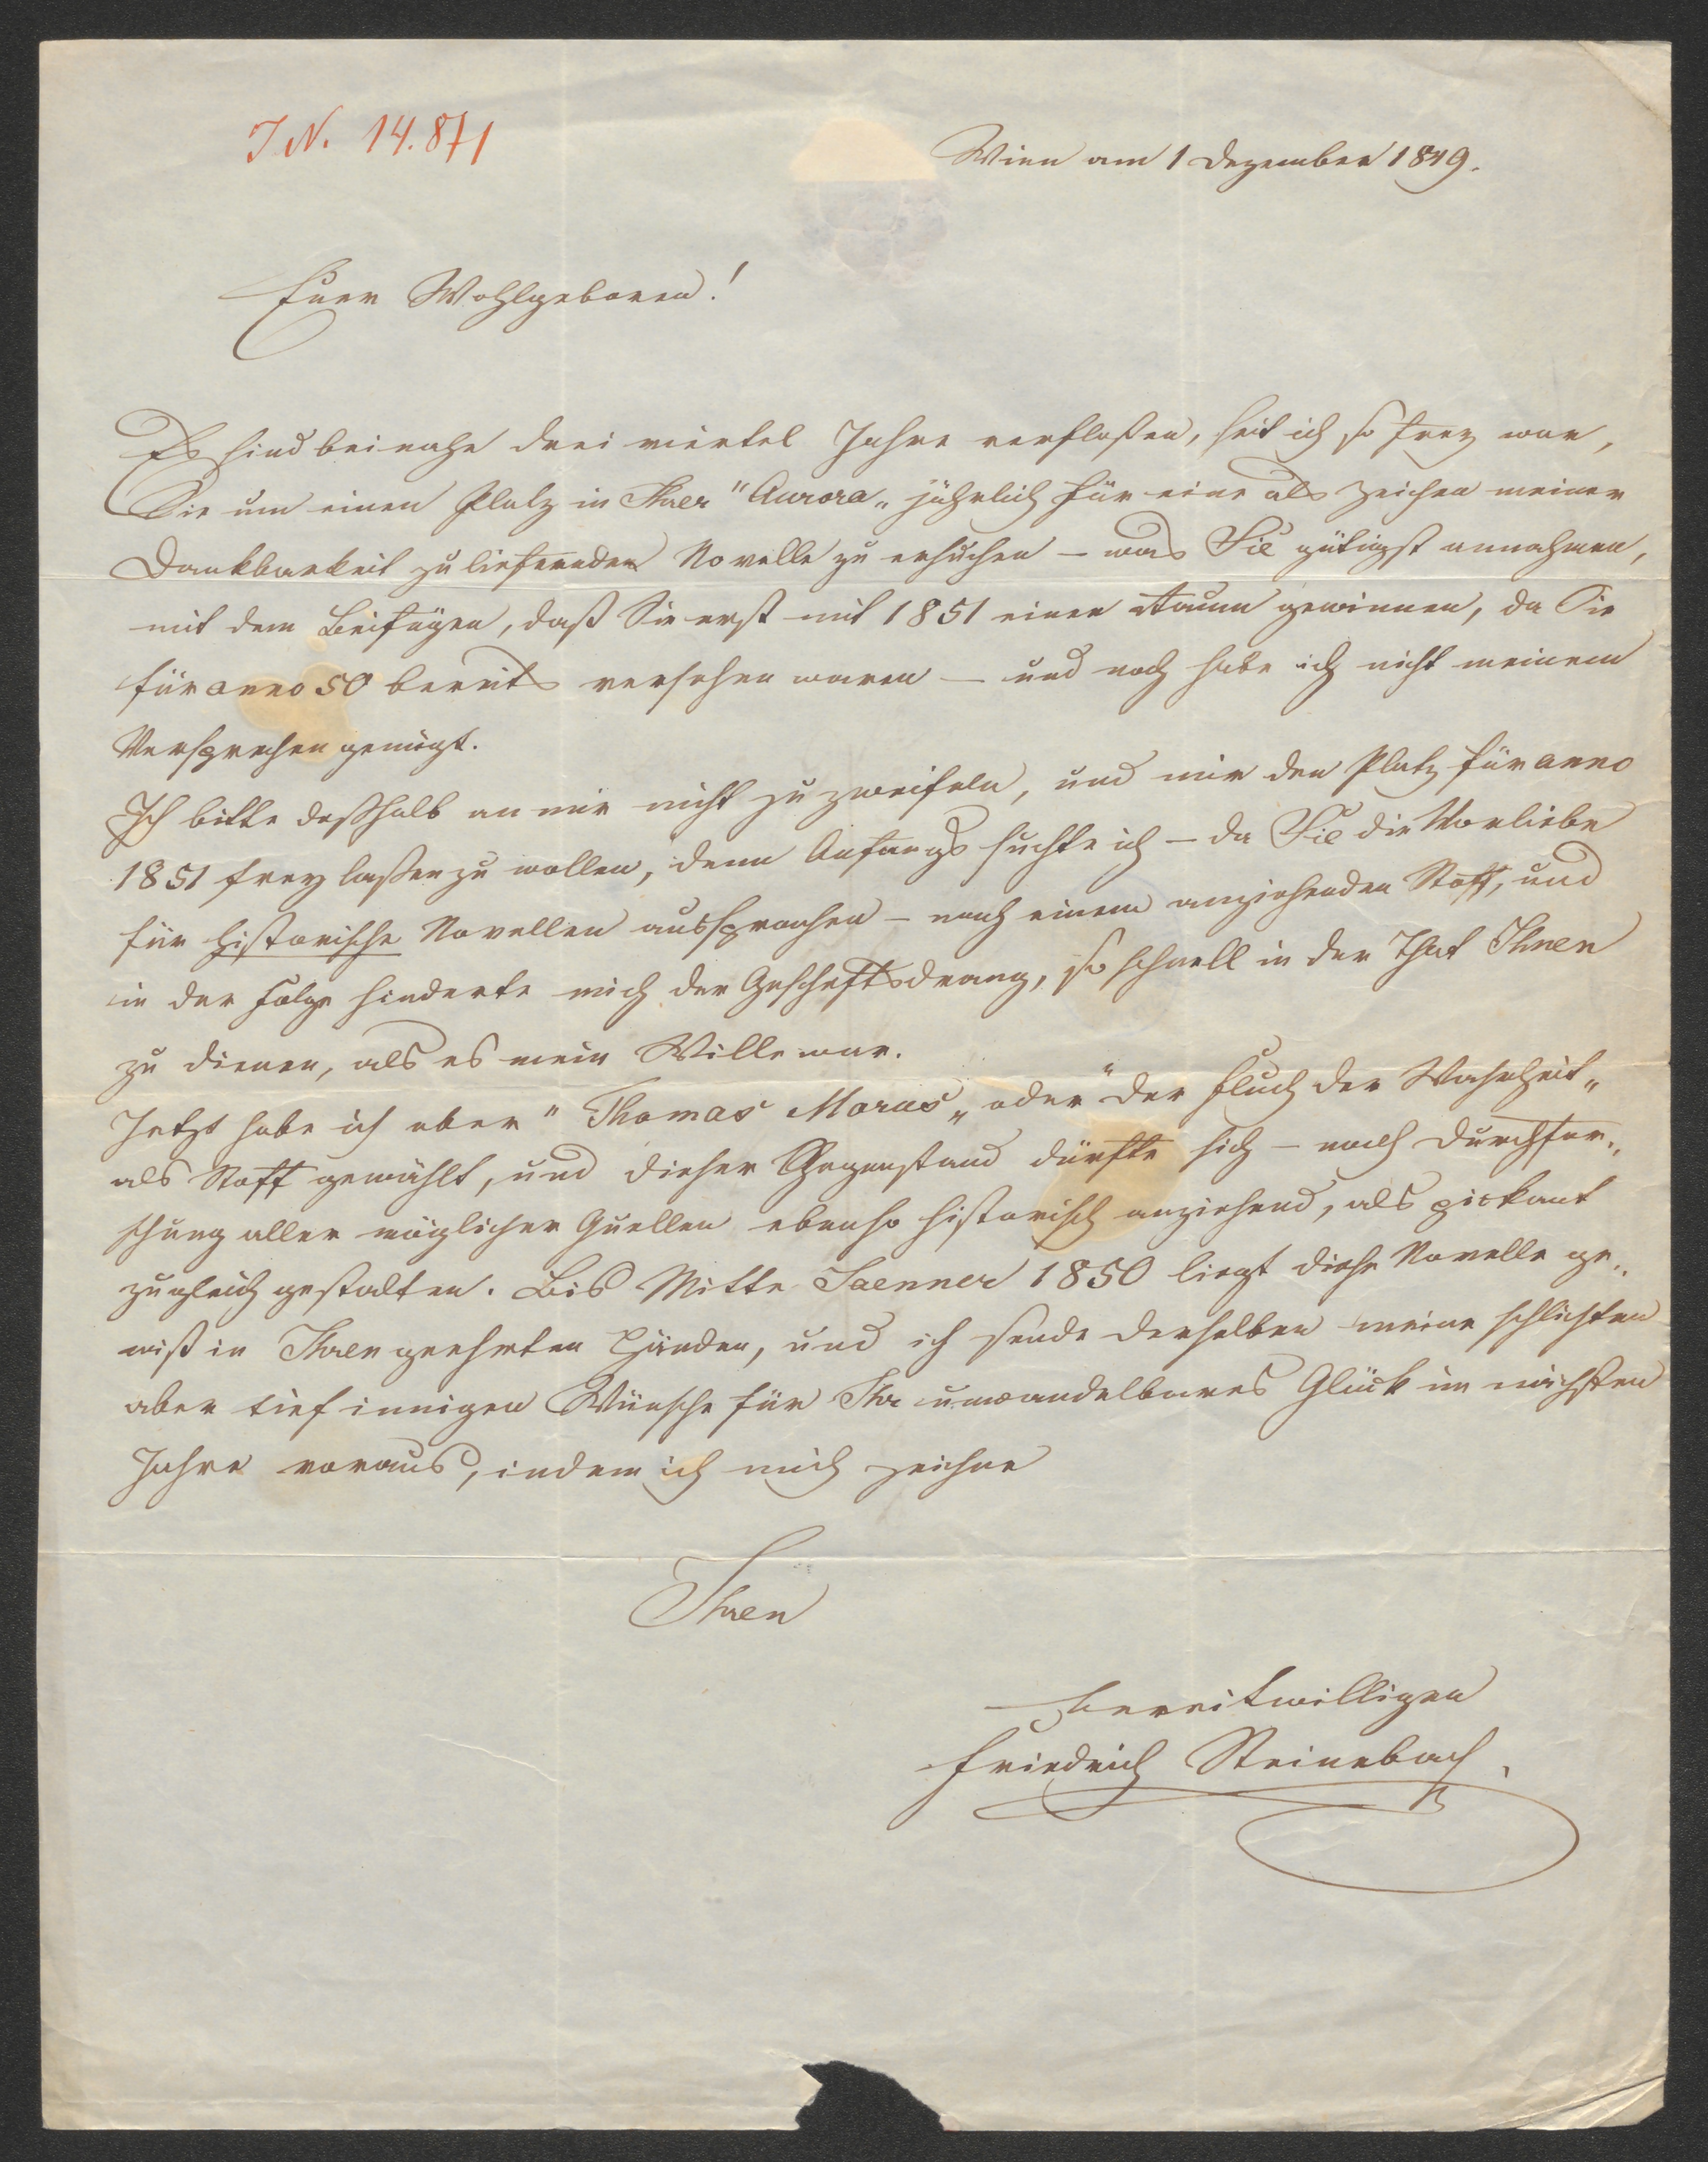 J.N. 14.871
Wien am 1 Dezember 1849.
Euer Wohlgeboren!
Es sind beinahe drei viertel Jahre verfloßen, seit ich so frey war,
Sie um einen Platz in Ihrer "Aurora„ jährlich für eine als Zeichen meiner
Dankbarkeit zu liefernden Novelle zu ersuchen – was Sie gütigst annahmen,
mit dem Beifügen, daß Sie erst mit 1851 einen Raum gewinnen, da Sie
für anno 50 bereits versehen waren – und noch habe ich nicht meinem
Versprechen genügt.
Ich bitte deßhalb an mir nicht zu zweifeln, und mir den Platz für anno
1851 frey laßen zu wollen, denn Anfangs suchte ich – da Sie die Vorliebe
für historische Novellen aussprachen – nach einem anziehenden Stoff, und
in der Folge hinderte mich der Geschäftsdrang, so schnell in der That Ihnen
zu dienen, als es mein Wille war.
Jetzt habe ich aber "Thomas Morus„ oder "der Fluch der Wahrheit„
als Stoff gewählt, und dieser Gegenstand dürfte sich – nach Durchfor„
schung aller möglicher Quellen ebenso historisch anziehend, als pickant
zugleich gestalten. Bis Mitte Jaenner 1850 liegt diese Novelle ge„
wiß in Ihren geehrten Händen, und ich sende derselben meine schlichten
aber tief innigen Wünsche für Ihr unwandelbares Glück im nächsten
Jahre voraus, indem ich mich zeichne
Ihren
bereitwilligen
Friedrich Steinebach.